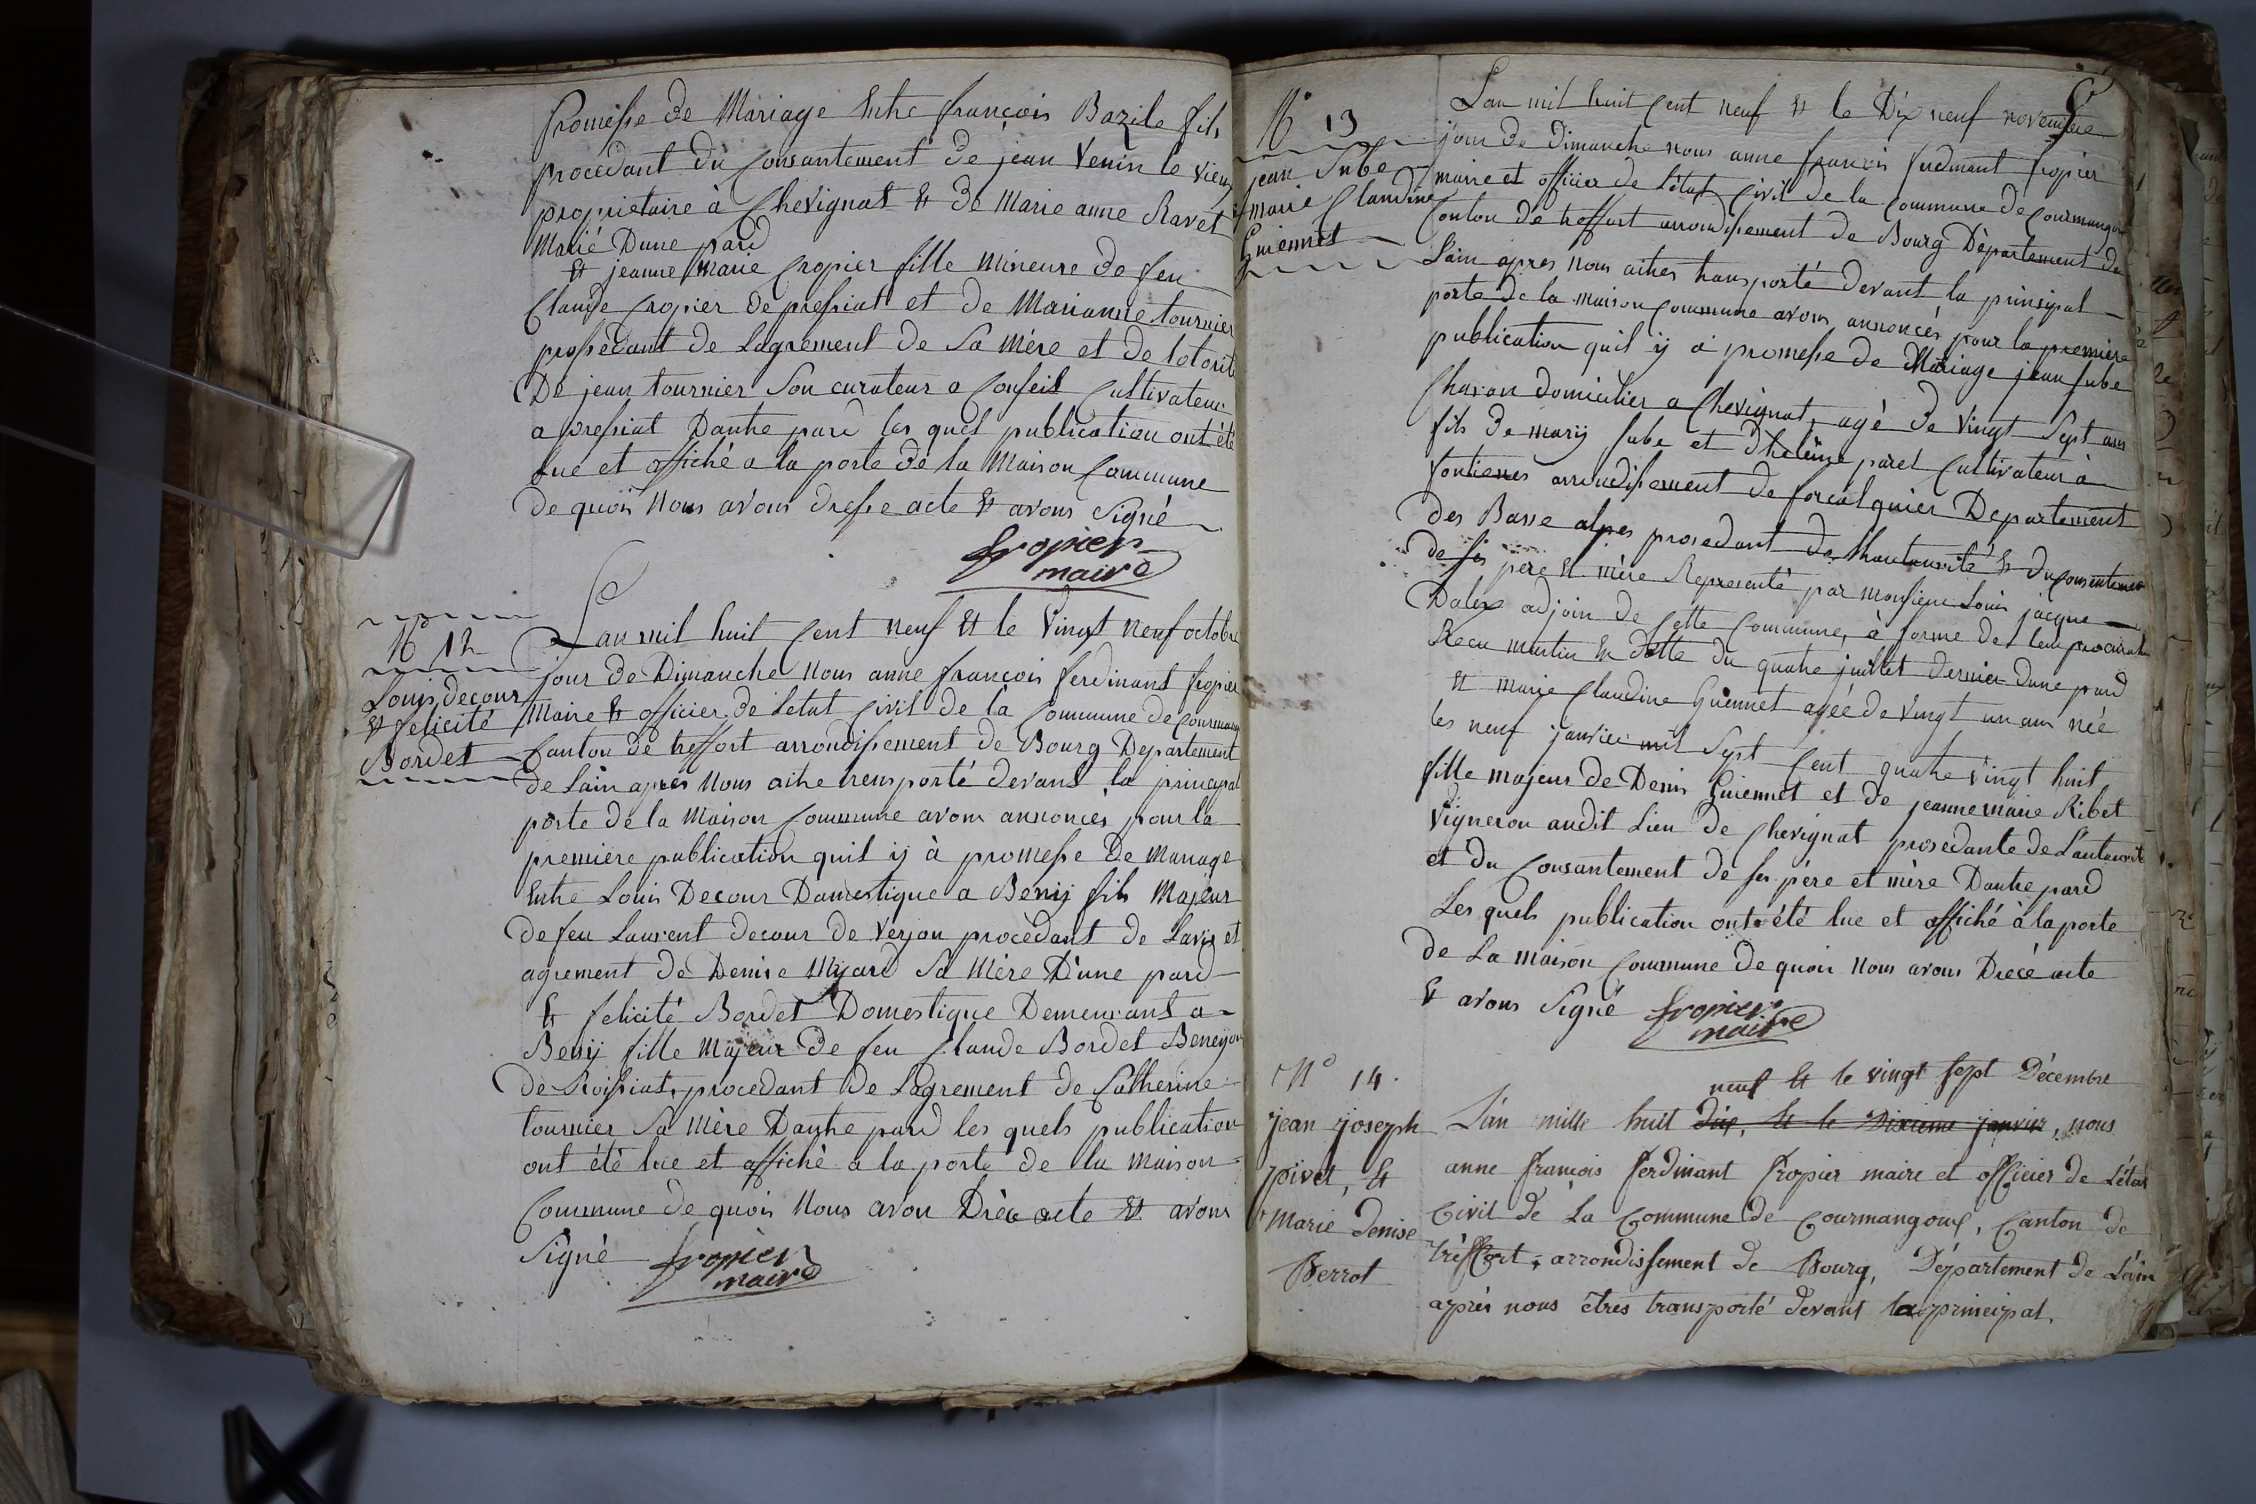 promesse de Mariage Entre françois Bazile fils
procedant du Consantement de jean Venin le vieux
propriétaire à Chevignat & de Marie anne Ravet
Marié Dune pard
& jeanne Marie Cropier fille mineure de feu
Claude Cropier de pressiat et de Marianne tournier
prossedant de Lagrement de Sa Mère et de lotorité
De jean tournier Son curateur a Conseil Cultivateur
a pressiat Dautre pard les quel publication ont été
lue et affiché a la porte de la Maison Commune
de quoi Nous avons dresse acte & avons Signé
fropier
maire
N° 12
Louis decour
& felicité
Bordet
Lan mil huit Cent neuf & le Vingt neuf octobre
jour de Dimanche Nous anne françois ferdinant fropier
Maire & officier de Letat Civil de la Commune de Courmangoux
Canton de treffort arrondissement de Bourg Departement
de Lain apres Nous aitre transporté devant la principal
porte de la Maison Commune avons annoncés pour la
premiere publication quil ij à promesse De Mariage
Entre Louis Decour Domestique a Benij fils Majeur
de feu Laurent decour de Verjon procèdant de Lavis et
agrement de Denise Myard Sa Mère D'une pard
& felicité Bordet Domestique Demeurant a
Benij fille Majeur de feu Claude Bordet
De Roissiat, procedant de Lagrement de Catherine
tournier Sa Mère Dautre pard les quels publication
ont été lue et affiché a la porte de la Maison
Commune de quoi Nous avon Drècé acte & avons
Signé fropier
maire
N° 13
jean Sube
& marie Claudine
Guiennet
Lan mil huit Cent neuf & le Dix neuf novembre
jour de Dimanche nous anne francois ferdinant fropier
maire et officier de Létat Civil de la Commune de Courmangoux
Canton de treffort arrondissement de Bourg Département de
Lain apres nous aitres transporté devant la principal
porte de la maison Commune avons annoncés pour la premiere
publication quil ij a promesse de Mariage jean Sube
Charon domicilier a Chevignat, agé de Vingt Sept ans
fils de marij Sube et dheleine paret Cultivateur à
fontienes arrondissement de forcalquier Departement
des Basse alpes prosedant de Lhautaurité & du consentement
de ses père & mère Representé par monsieur Louis jacque
Dalex adjoin de Cette Commune, à forme de leur procuration
Recu martin en datte du quatre juillet dernier Dune pard
& marie Claudine Guiennet agée de Vingt un ans née
les neuf janvier mil Sept Cent quatre Vingt huit
fille majeur de Denis Guiennet et de jeanne marie Ribet
Vigneron audit Lieu de Chevignat prosedante de Lautaurité
et du Consantement de ses père et mère Dautre pard
Les quels publication ont été lue et affiché à la porte
de La maison Commune de quoi Nous avons Drecé acte
& avons Signé fropier
maire
N° 14.
jean joseph
pivet, &
Marie denise
Perrot
neuf & le vingt sept Décembre
L'an mille huit dix, & le Dixieme janvier, nous
anne françois ferdinant fropier maire et officier de L'état
Civil de La Commune de Courmangoux, Canton de
tréffort, arrondissement de Bourg, Département de L'ain
après nous êtres transporté devant la principal